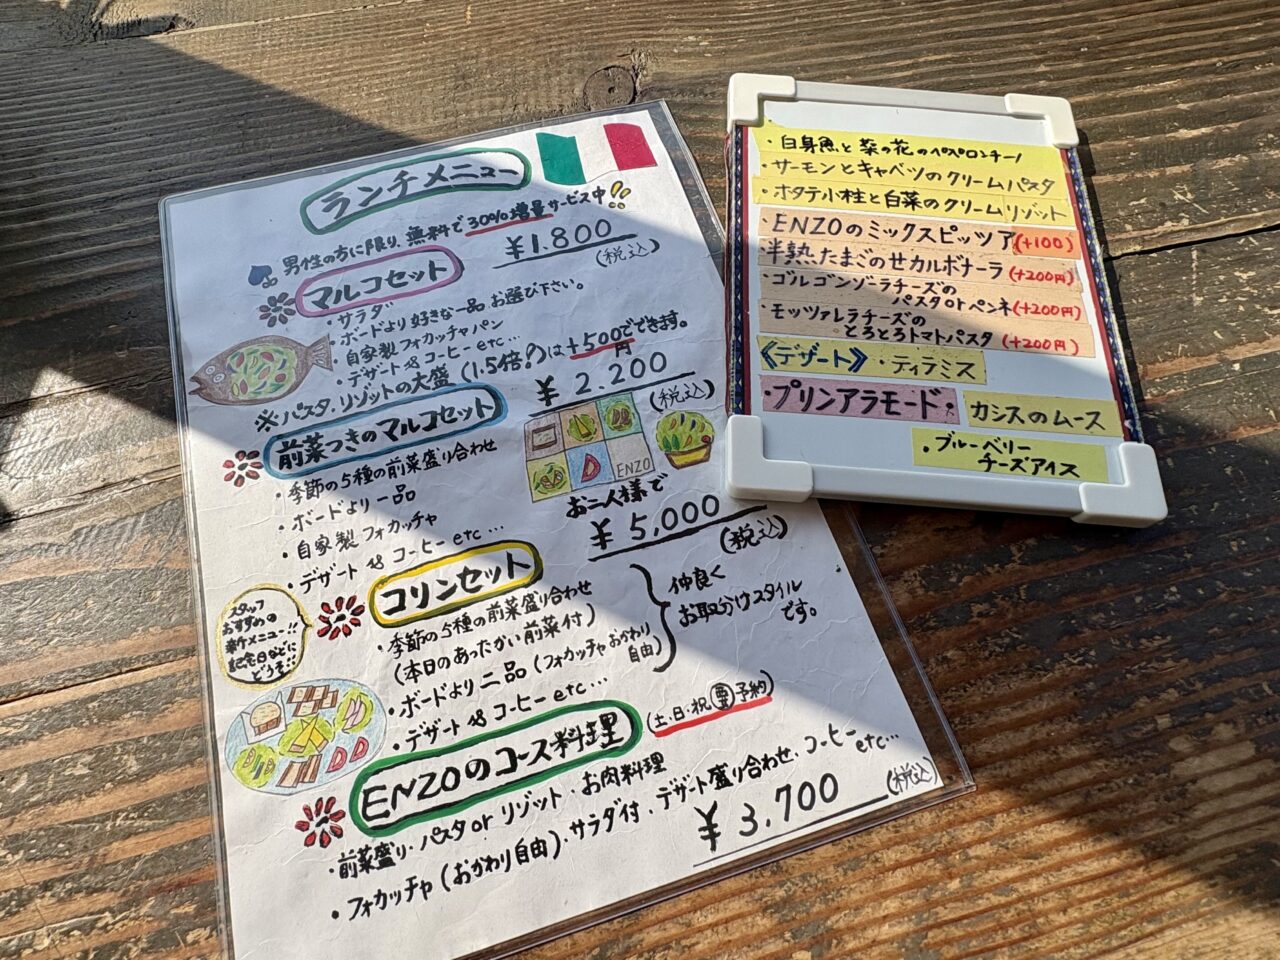 ランチメニュー
男性の方に限り、無料で30%増量サービス中!!
マルコセット
¥1.800
(税込)
・サラダ
・ボードより好きな一品お選び下さい。
・自家製フォカッチャパン
・デザート &コーヒー etc…
※パスタ、リゾットの大盛(1.5倍!)は+500円でできます。
前菜つきのマルコセット
¥2.200
(税込)
・季節の5種の前菜盛り合わせ
・ボードより一品
・自家製フォカッチャ
・デザート &コーヒー etc…
ENZO
コリンセット
お二人様で
¥5,000
(税込)
スタッフ
おすすめの
新メニュー!!
記念日などに
どうぞ!!
・季節の5種の前菜盛り合わせ
(本日のあったかい前菜付)
・ボードより二品(フォカッチャおかわり自由)
・デザート &コーヒー etc…
仲良く
お取分けスタイル
です。
ENZOのコース料理
(土・日・祝 要予約)
・前菜盛り・パスタ or リゾット・お肉料理
・フォカッチャ(おかわり自由)・サラダ付・デザート盛り合わせ・コーヒー etc…
¥3.700
(税込)
・白身魚と菜の花のペペロンチーノ
・サーモンとキャベツのクリームパスタ
・ホタテ小柱と白菜のクリームリゾット
・ENZOのミックスピッツア(+100)
・半熟たまごのせカルボナーラ(+200円)
・ゴルゴンゾーラチーズの
パスタorペンネ(+200円)
・モッツァレラチーズの
とろとろトマトパスタ(+200円)
《デザート》・ティラミス
・プリンアラモード・カシスのムース
・ブルーベリー
チーズアイス